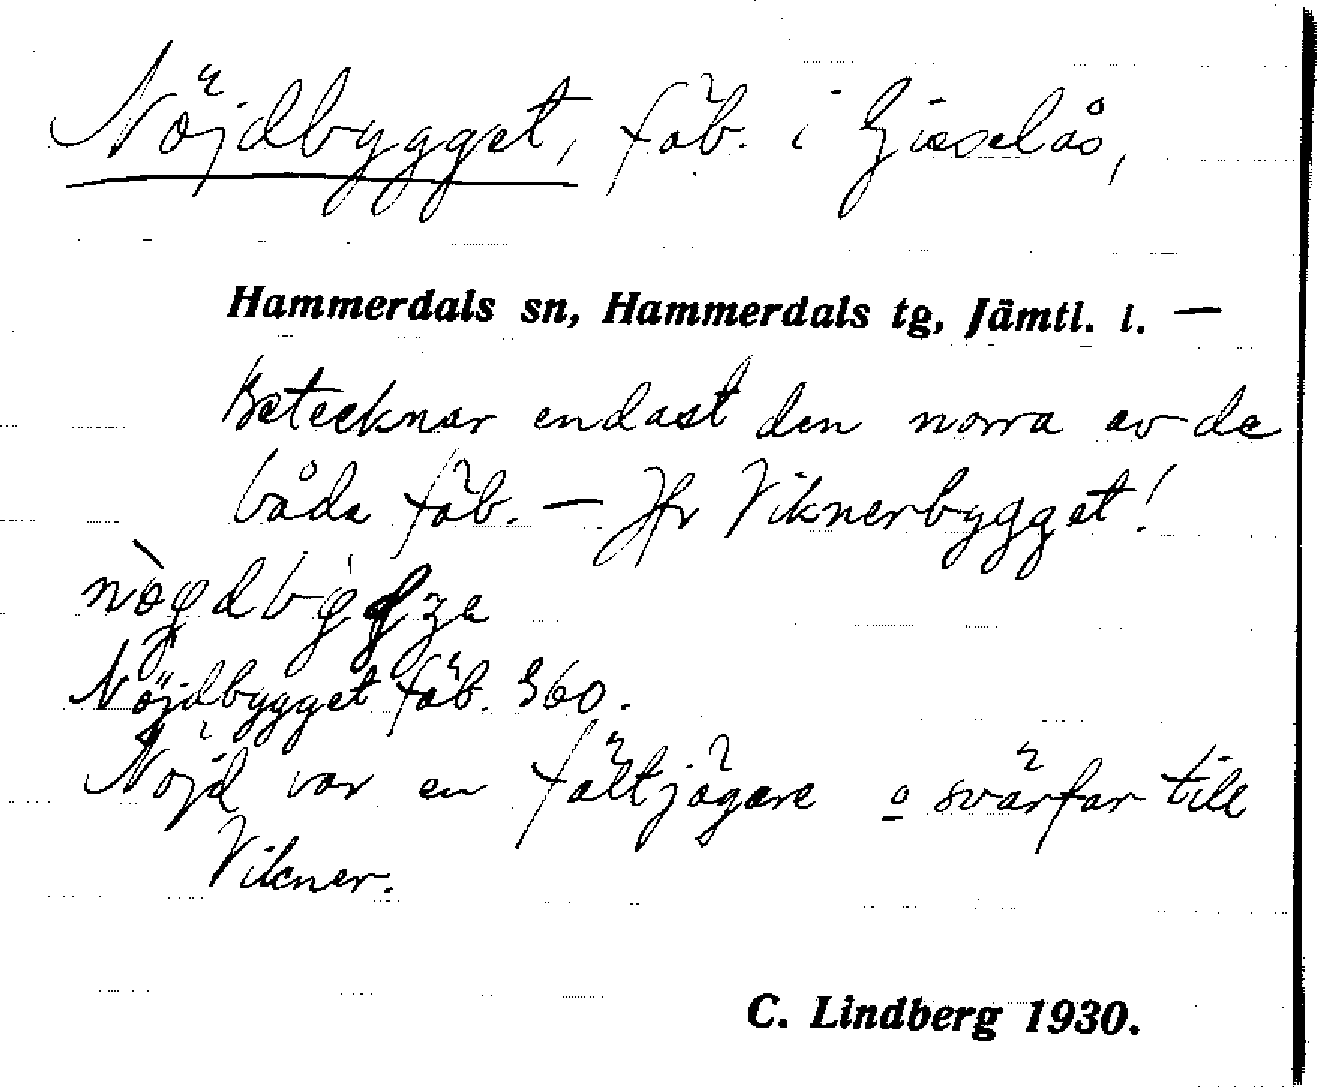 Nöjdbygget, fäb. i Gisselås,
Hammerdals sn, Hammerdals tg, Jämtl. l. —
Betecknar endast den norra av de
båda fäb. — Jfr Viknerbygget!
Nöjdbygget fäb. 360.
Nöjd var en fältjägare o svärfar till
Vikner.
C. Lindberg 1930.